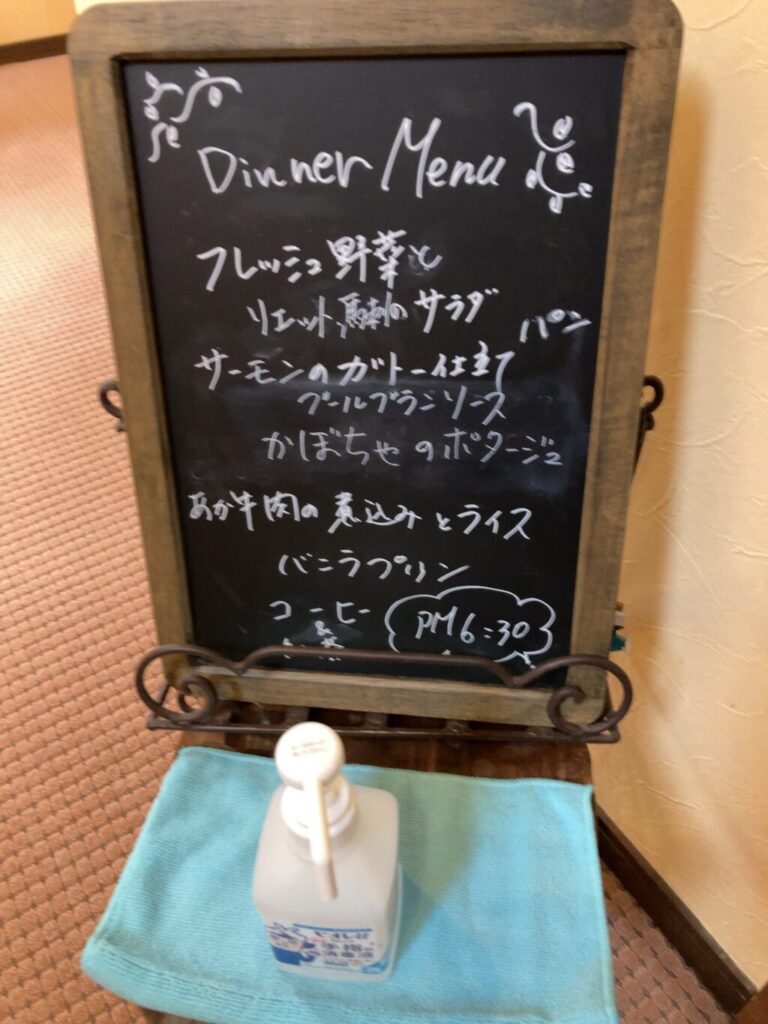 Dinner Menu
フレッシュ野菜と
リエット、馬刺のサラダ
パン
サーモンのガトー仕立て
ブールブランソース
かぼちゃのポタージュ
あか牛肉の煮込みとライス
バニラプリン
コーヒー
&
PM6:30
ビオレu
手指の
消毒液